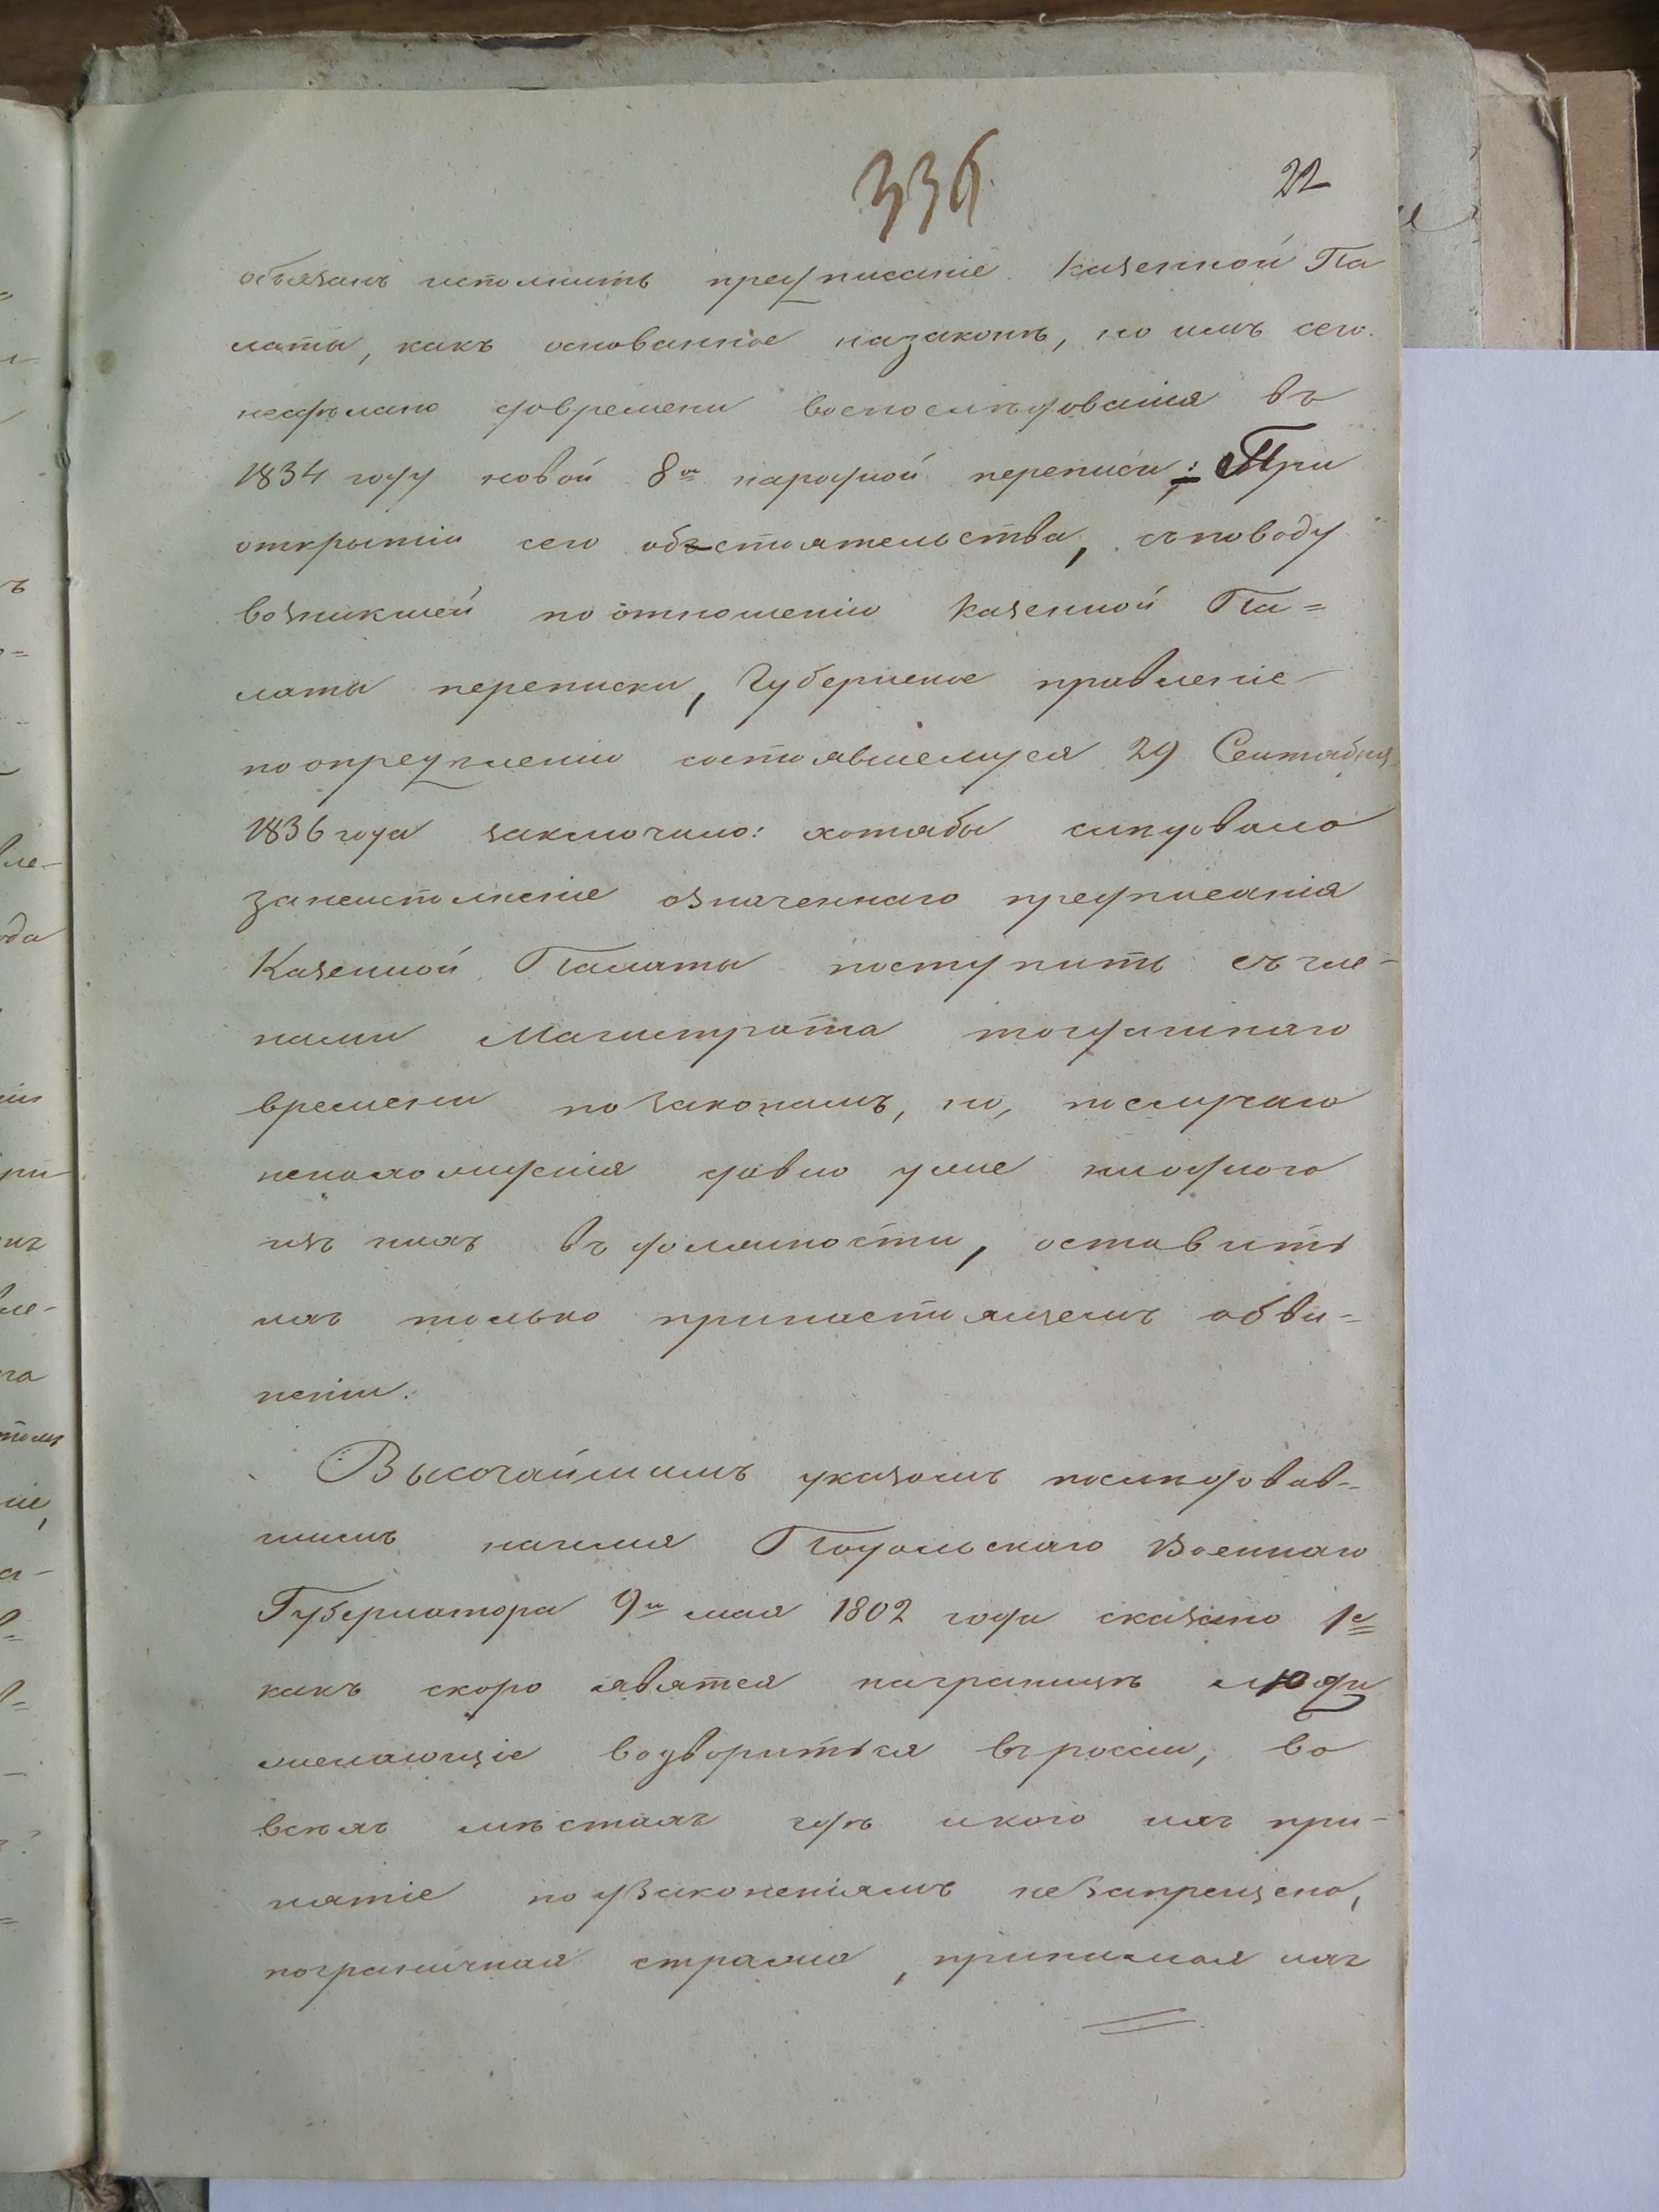 336
22
обязанъ исполнить предписаніе Казенной Па
латы, какъ основанное назаконѣ, но имъ сего
несдѣлано довремени воспослѣдованія въ
1834 году новой 8ой народной переписи: При
открытіи сего обстоятельства, споводу
возникшей по отношенію Казенной Па=
латы переписки, Губернское правленіе
по опредѣленію состоявшемуся 29 Сентября
1836 года заключило: хотябы слѣдовало
занеисполненіе означеннаго предписанія
Казенной Палаты поступить съ чле-
нами Магистрата тогдашняго
времени по законамъ, но, послучаю
ненахожденія давно уже ниодного
изъ нихъ въ должности, оставить
ихъ только принастоящемъ обви=
неніи.
Высочайшимъ указомъ послѣдовав-
шимъ наимя Подольскаго Военнаго
Губернатора 9го мая 1802 года сказано 1е
какъ скоро явятся награницѣ люди
желающіе водвориться въ россіи, во
всѣхъ мѣстахъ гдѣ икого ихъ при-
нятіе поузаконеніямъ незапрещено,
пограничная стража, принимая ихъ